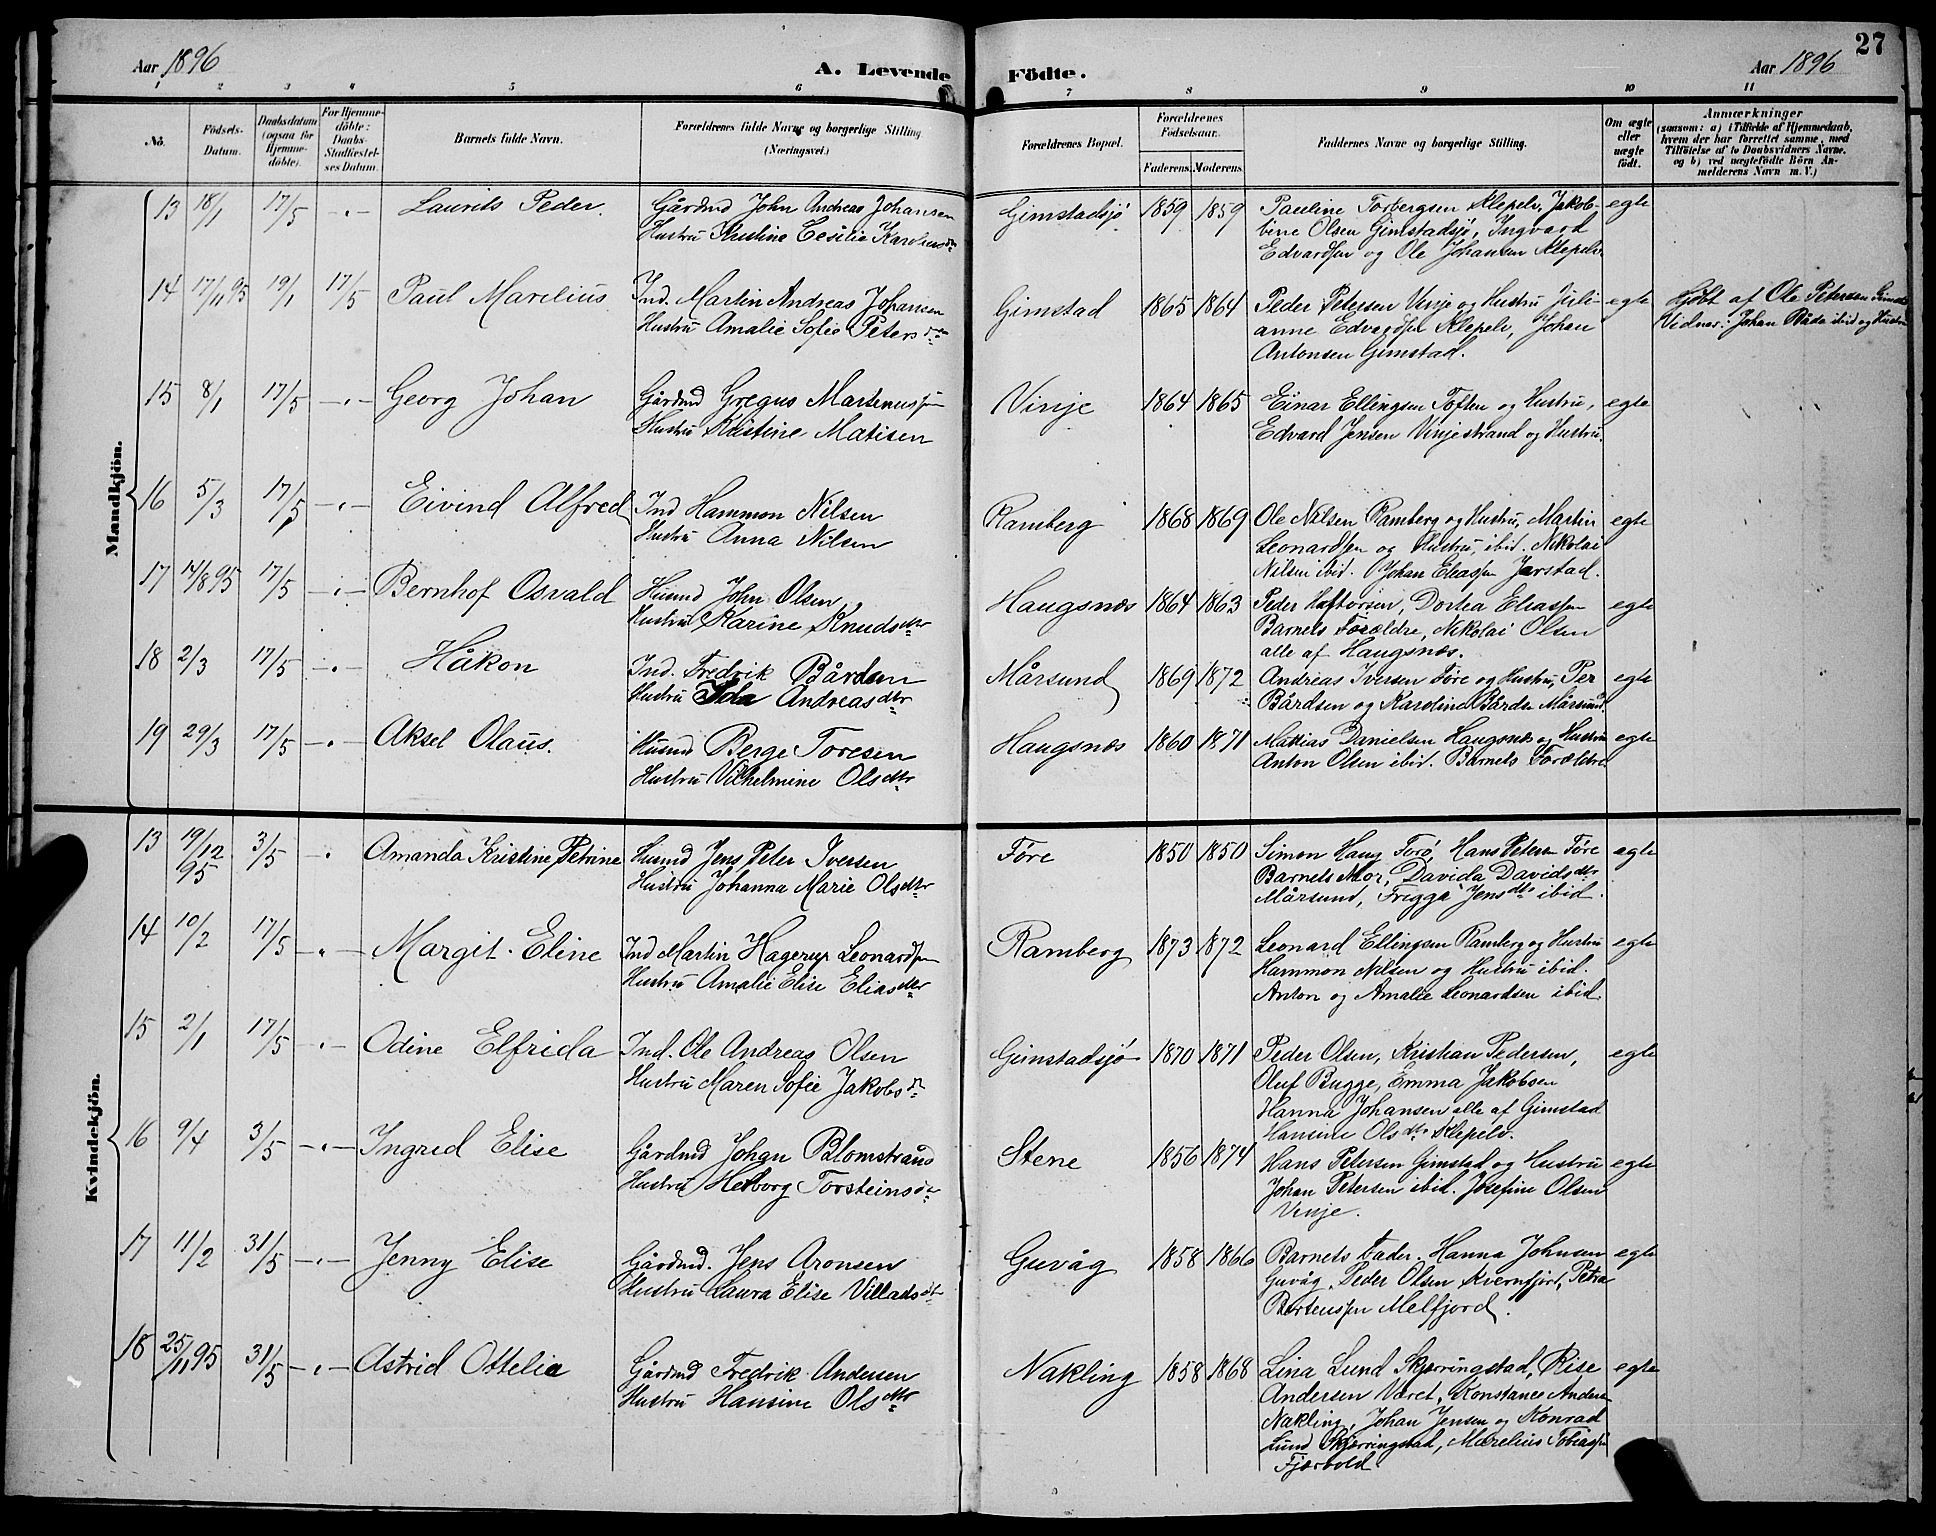 Aar 1896 A. Levende Födte. Aar 1896 27
1 2 3 4 5 6 7 8 9 10 11
No. Födsels-Datum. Daabsdatum (ogsaa för Hjemmedöbte). For Hjemmedöbte: Daabs-Stadfæstelses Datum. Barnets fulde Navn. Forældrenes fulde Navne og borgerlige Stilling (Næringsvei.) Forældrenes Bopæl. Forældrenes Födselsaar. Faderens. Moderens. Faddernes Navne og borgerlige Stilling. Om ægte eller uægte födt. Anmærkninger (saasom: a) i Tilfælde af Hjemmedaab, hvem der har forrettet samme, med Tilföielse af to Daabsvidners Navne, og b) ved uægtefödte Börn Anmelderens Navn m. V.)
Mandkjön.
13 18/1 17/5 -"- Laurits Peder. Gårdmd John Andreas Johansen Gimstadsjö 1859 1859 Pauline Torbergsen Klepelv, Jakob- egte
Hustru Kristine Cesilie Karolius dtr bine Olsen Gimstadsjö, Ingvard
Edvardsen og Ole Johansen Klepelv.
14 17/11 95 19/1 17/5 Paul Marelius Ind. Martin Andreas Johansen Gimstad 1865 1864 Peder Petersen Vinje og Hustru Juli- egte Hjdbt af Ole Petersen Gimstd
Hustru Amalie Sofie Peters dtr anne Edvardsen Klepelv, Johan Vidner: Johan Råde ibid og Hustru
Antonsen Gimstad.
15 8/1 17/5 -"- Georg Johan Gårdmd Gregus Martenussen Vinje 1864 1865 Einar Ellingsen Toften og Hustru, egte
Hustru Kristine Matisen Edvard Jensen Vinjestrand og Hustru.
16 5/3 17/5 -"- Eivind Alfred Ind Hammon Nilsen Ramberg 1868 1869 Ole Nilsen Ramberg og Hustru, Martin egte
Hustru Anna Nilsen Leonardsen og Hustru, ibid. Nikolai
Nilsen ibid. Johan Eliassen Jorstad.
17 14/8 95 17/5 -"- Bernhof Osvald Husmd John Olsen Haugsnæs 1864 1863 Peder Haftorsen, Dortea Eliassen egte
Hustru Karine Knuds dtr Barnets Forældre, Nikolai Olsen
alle af Haugsnæs.
18 2/3 17/5 -"- Håkon Ind. Fredrik Bårdsen Mårsund 1869 1872 Andreas Iversen Före og Hustru, Per egte
Hustru Ida Andreas dtr Bårdsen og Karoline Bårds Mårsund.
19 29/3 17/5 -"- Aksel Olaus. Husmd Berge Toresen Haugsnæs 1860 1871 Matias Danielsen Haugsnæs og Hustru egte
Hustru Vilhelmine Ols dtr Anton Olsen ibid. Barnets Forældre.
Kvindekjön.
13 19/12 95 3/5 -" Amanda Kristine Petrine Husmd Jens Peter Iversen Före 1850 1850 Simon Haug Forö, Hans Petersen Före egte
Hustru Johanna Marie Ols dtr Barnets Mor, Davida Davids dtr
Mårsund, Frigga Jens dtr ibid.
14 10/2 17/5 -"- Margit Eline Ind Martin Hagerup Leonardsen Ramberg 1873 1872 Leonard Ellingsen Ramberg og Hustru egte
Hustru Amalie Elise Elias dtr Hammon Nilsen og Hustru ibid.
Anton og Amalie Leonardsen ibid.
15 2/1 17/5 -"- Odine Elfrida Ind. Ole Andreas Olsen Gimstadsjö 1870 1871 Peder Olsen, Kristian Pedersen, egte
Hustru Maren Sofie Jakobs dtr Oluf Bugge, Emma Jakobsen
Hanna Johansen alle af Gimstad
Hansine Ols dtr Klepelv.
16 9/4 3/5 -"- Ingrid Elise Gårdmd Johan Blomstrand Stene 1856 1874 Hans Petersen Gimstad og Hustru egte
Hustru Helborg Torsteins dtr Johan Petersen ibid. Josefine Olsen
Vinje.
17 11/2 31/5 -"- Jenny Elise Gårdmd. Jens Aronsen Guvåg 1858 1866 Barnets Fader. Hanna Johnsen egte
Hustru Laura Elise Villads dtr Guvåg, Peder Olsen Kvernfjord, Petra
Bertenssen Melfjord.
18 25/11 95 31/5 -"- Astrid Ottelia Gårdmd Fredrik Andersen Nakling 1858 1868 Lina Lund Skjerringstad, Rise egte
Hustru Hansine Ols dtr Andersen Været, Konstance Anders
Nakling, Johan Jensen og Konrad
Lund Skjerringstad, Marelius Tobiassen
Fjærvold.